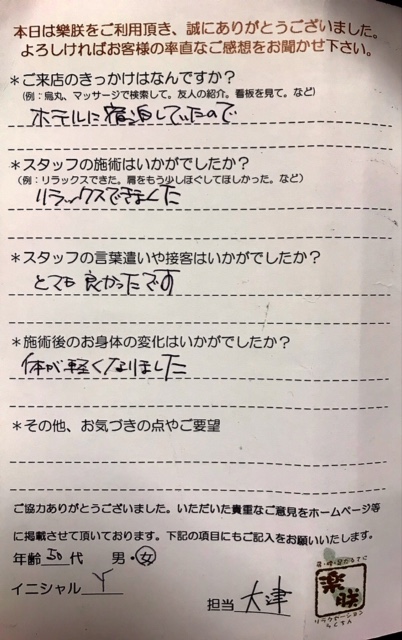 本日は樂朕をご利用頂き、誠にありがとうございました。
よろしければお客様の率直なご感想をお聞かせ下さい。
＊ご来店のきっかけはなんですか？
(例：烏丸、マッサージで検索して。友人の紹介。看板を見て。など)
ホテルに宿泊していたので
＊スタッフの施術はいかがでしたか？
(例：リラックスできた。肩をもう少しほぐしてほしかった。など)
リラックスできました
＊スタッフの言葉遣いや接客はいかがでしたか？
とても良かったです
＊施術後のお身体の変化はいかがでしたか？
体が軽くなりました
＊その他、お気づきの点やご要望
ご協力ありがとうございました。いただいた貴重なご意見をホームページ等
に掲載させて頂いております。下記の項目にもご記入をお願いいたします。
年齢 50 代 男・女
イニシャル Y
担当 大津
楽朕
リラクゼーション
らくちん